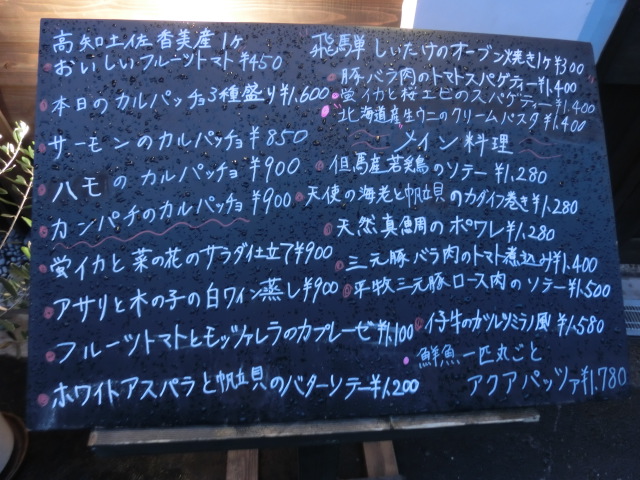 高知土佐香美産1ヶ
おいしいフルーツトマト¥450
本日のカルパッチョ3種盛り¥1,600
サーモンのカルパッチョ¥850
ハモのカルパッチョ¥900
カンパチのカルパッチョ¥900
蛍イカと菜の花のサラダ仕立て¥900
アサリと木の子の白ワイン蒸し¥900
フルーツトマトとモッツァレラのカプレーゼ¥1,100
ホワイトアスパラと帆立貝のバターソテー¥1,200
飛騨しいたけのオーブン焼き1ヶ¥300
豚バラ肉のトマトスパゲティー¥1,400
蛍イカと桜エビのスパゲティー¥1,400
北海道産生ウニのクリームパスタ¥1,400
メイン料理
但馬産若鶏のソテー¥1,280
天使の海老と帆立貝のカダイフ巻き¥1,280
天然真鯛のポワレ¥1,280
三元豚バラ肉のトマト煮込み¥1,400
平牧三元豚ロース肉のソテー¥1,500
仔牛のカツレツミラノ風¥1,580
鮮魚一匹丸ごと
アクアパッツァ¥1,780